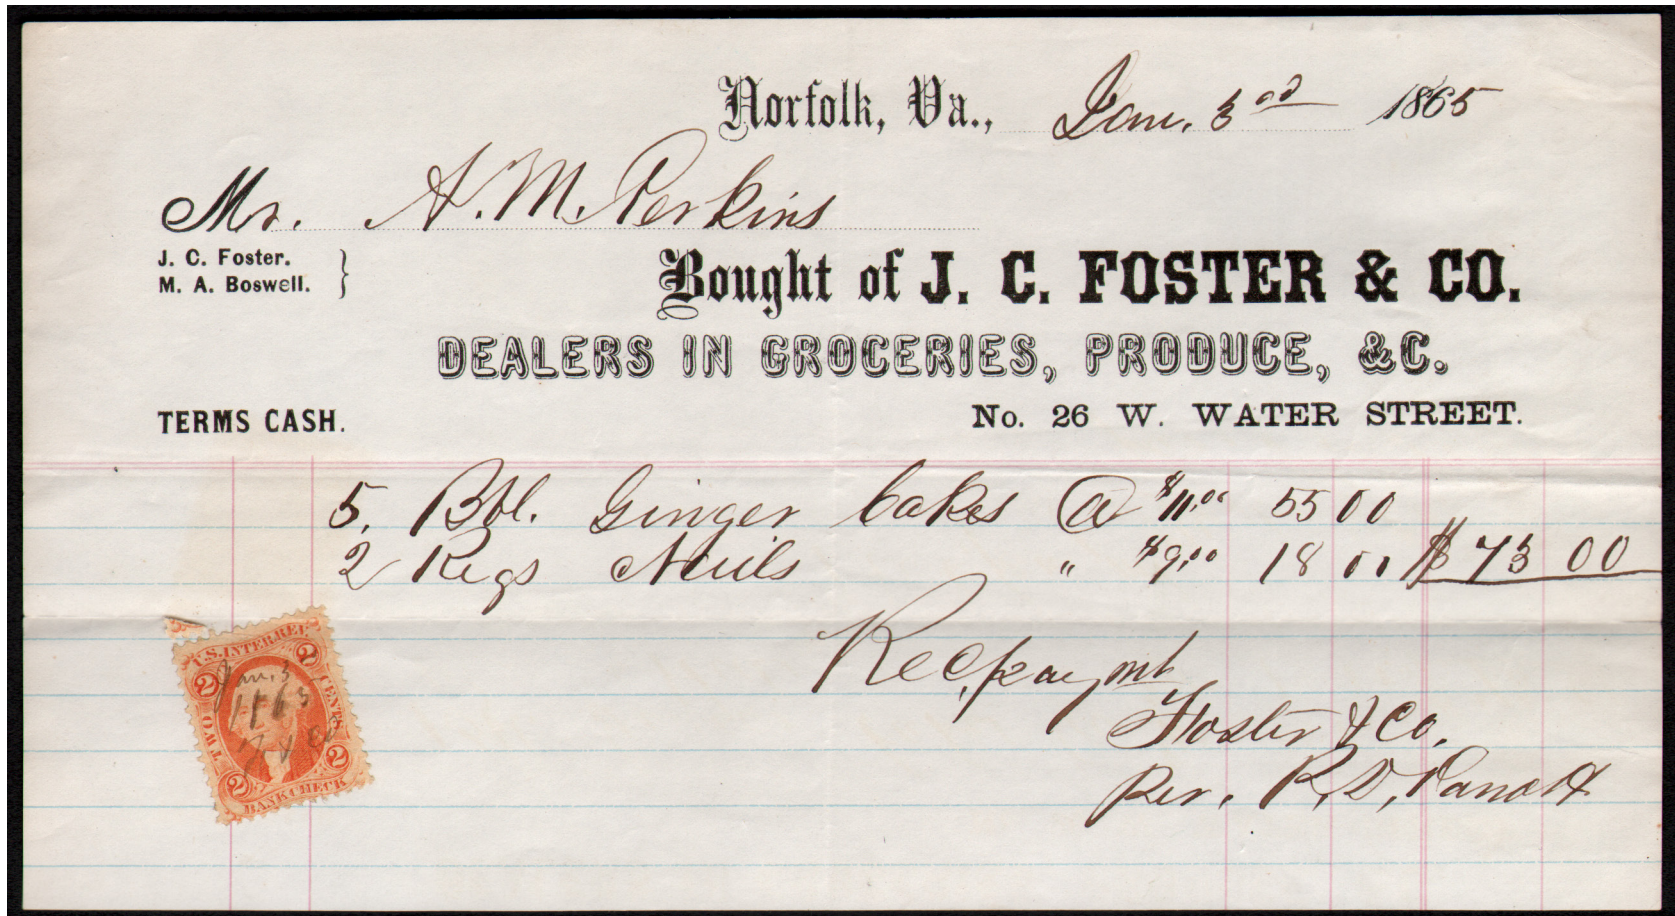 Norfolk, Va., Jan. 3rd 1865
Mr. A. M. Perkins
J. C. Foster.
M. A. Boswell.
Bought of J. C. FOSTER & CO.
DEALERS IN GROCERIES, PRODUCE, &C.
TERMS CASH.
No. 26 W. WATER STREET.
5. Bbl. Ginger Cakes @ $11.00 55 00
2 Kegs Nails " $9.00 18 00 $ 73 00
Rec, paymt
Foster & Co.
Per. R. D. Parrott
U.S. INTER. REV.
2 2
Jan. 3
1865
F & Co
TWO CENTS
2 2
BANK CHECK